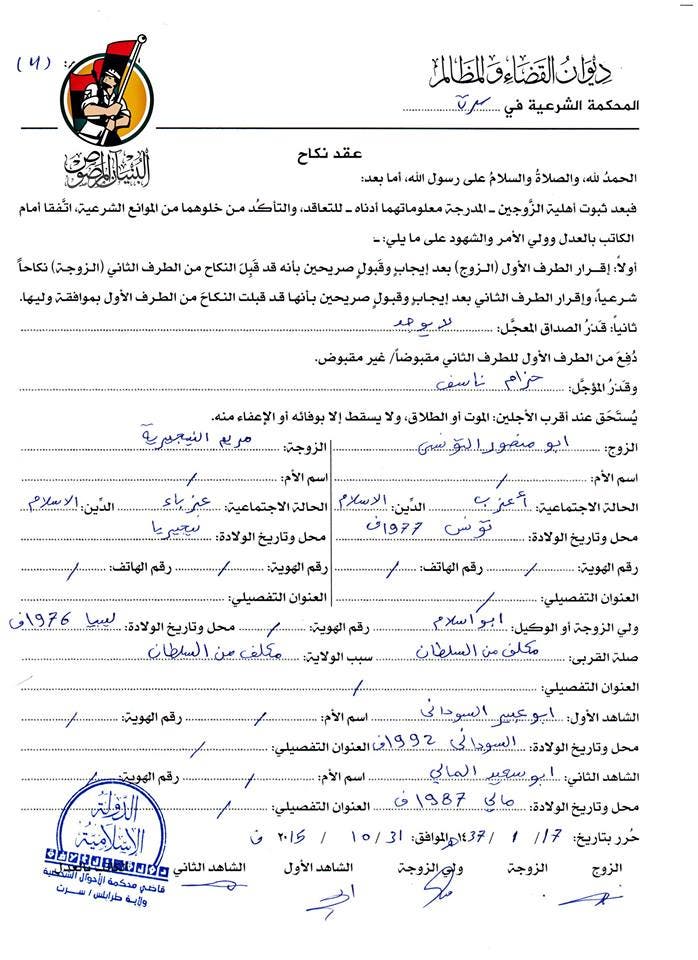 (٧١)
ديوان القضاء والمظالم
المحكمة الشرعية في سرت
البنيان المرصوص
عقد نكاح
الحمدُ لله، والصلاةُ والسلامُ على رسول الله، أما بعد:
فبعد ثبوت أهلية الزَّوجين ـ المدرجة معلوماتهما أدناه ـ للتعاقد، والتأكُد من خلوهما من الموانع الشرعية، اتَّفقا أمام
الكاتب بالعدل وولي الأمر والشهود على ما يلي: ـ
أولاً: إقرار الطرف الأول (الزوج) بعد إيجابٍ وقَبولٍ صريحين بأنه قد قَبِلَ النكاح من الطرف الثاني (الزوجة) نكاحاً
شرعياً، وإقرار الطرف الثاني بعد إيجابٍ وقبولٍ صريحين بأنها قد قبلت النكاحَ من الطرف الأول بموافقة وليها.
ثانياً: قَدَرُ الصداق المعجَّل: لا يوجد
دُفِعَ من الطرف الأول للطرف الثاني مقبوضاً/ غير مقبوض.
وقَدَرُ المؤجَّل: حزام ناسف
يُستَحَق عند اقرب الأجلين: الموت أو الطلاق، ولا يسقط إلا بوفائه أو الإعفاء منه.
الزوج: ابو منصور التونسي الزوجة: مريم النيجيرية
اسم الأم: / اسم الأم: /
الحالة الاجتماعية: أعزب الدِّين: الاسلام الحالة الاجتماعية: عزباء الدِّين: الاسلام
محل وتاريخ الولادة: تونس 1977ف محل وتاريخ الولادة: نيجيريا
رقم الهوية: / رقم الهاتف: / رقم الهوية: / رقم الهاتف: /
العنوان التفصيلي: / العنوان التفصيلي:
ولي الزوجة أو الوكيل: ابو اسلام رقم الهوية: / محل وتاريخ الولادة: ليبيا 1976ف
صلة القربى: مكلف من السلطان سبب الولاية: مكلف من السلطان
العنوان التفصيلي: /
الشاهد الأول: ابو عبير السوداني اسم الأم: / رقم الهوية: /
محل وتاريخ الولادة: السوداني 1992ف العنوان التفصيلي: /
الشاهد الثاني: ابو سعيد المالي اسم الأم: / رقم الهوية: /
محل وتاريخ الولادة: مالي 1987ف العنوان التفصيلي: /
حُرر بتاريخ: 17 / 1 / ١٤37هـ الموافق: 31 / 10 / ٢٠١5 ف
الزوج الزوجة ولي الزوجة الشاهد الأول الشاهد الثاني
الدولة
الإسلامية
قاضي محكمة الأحوال الشخصية
ولاية طرابلس / سرت